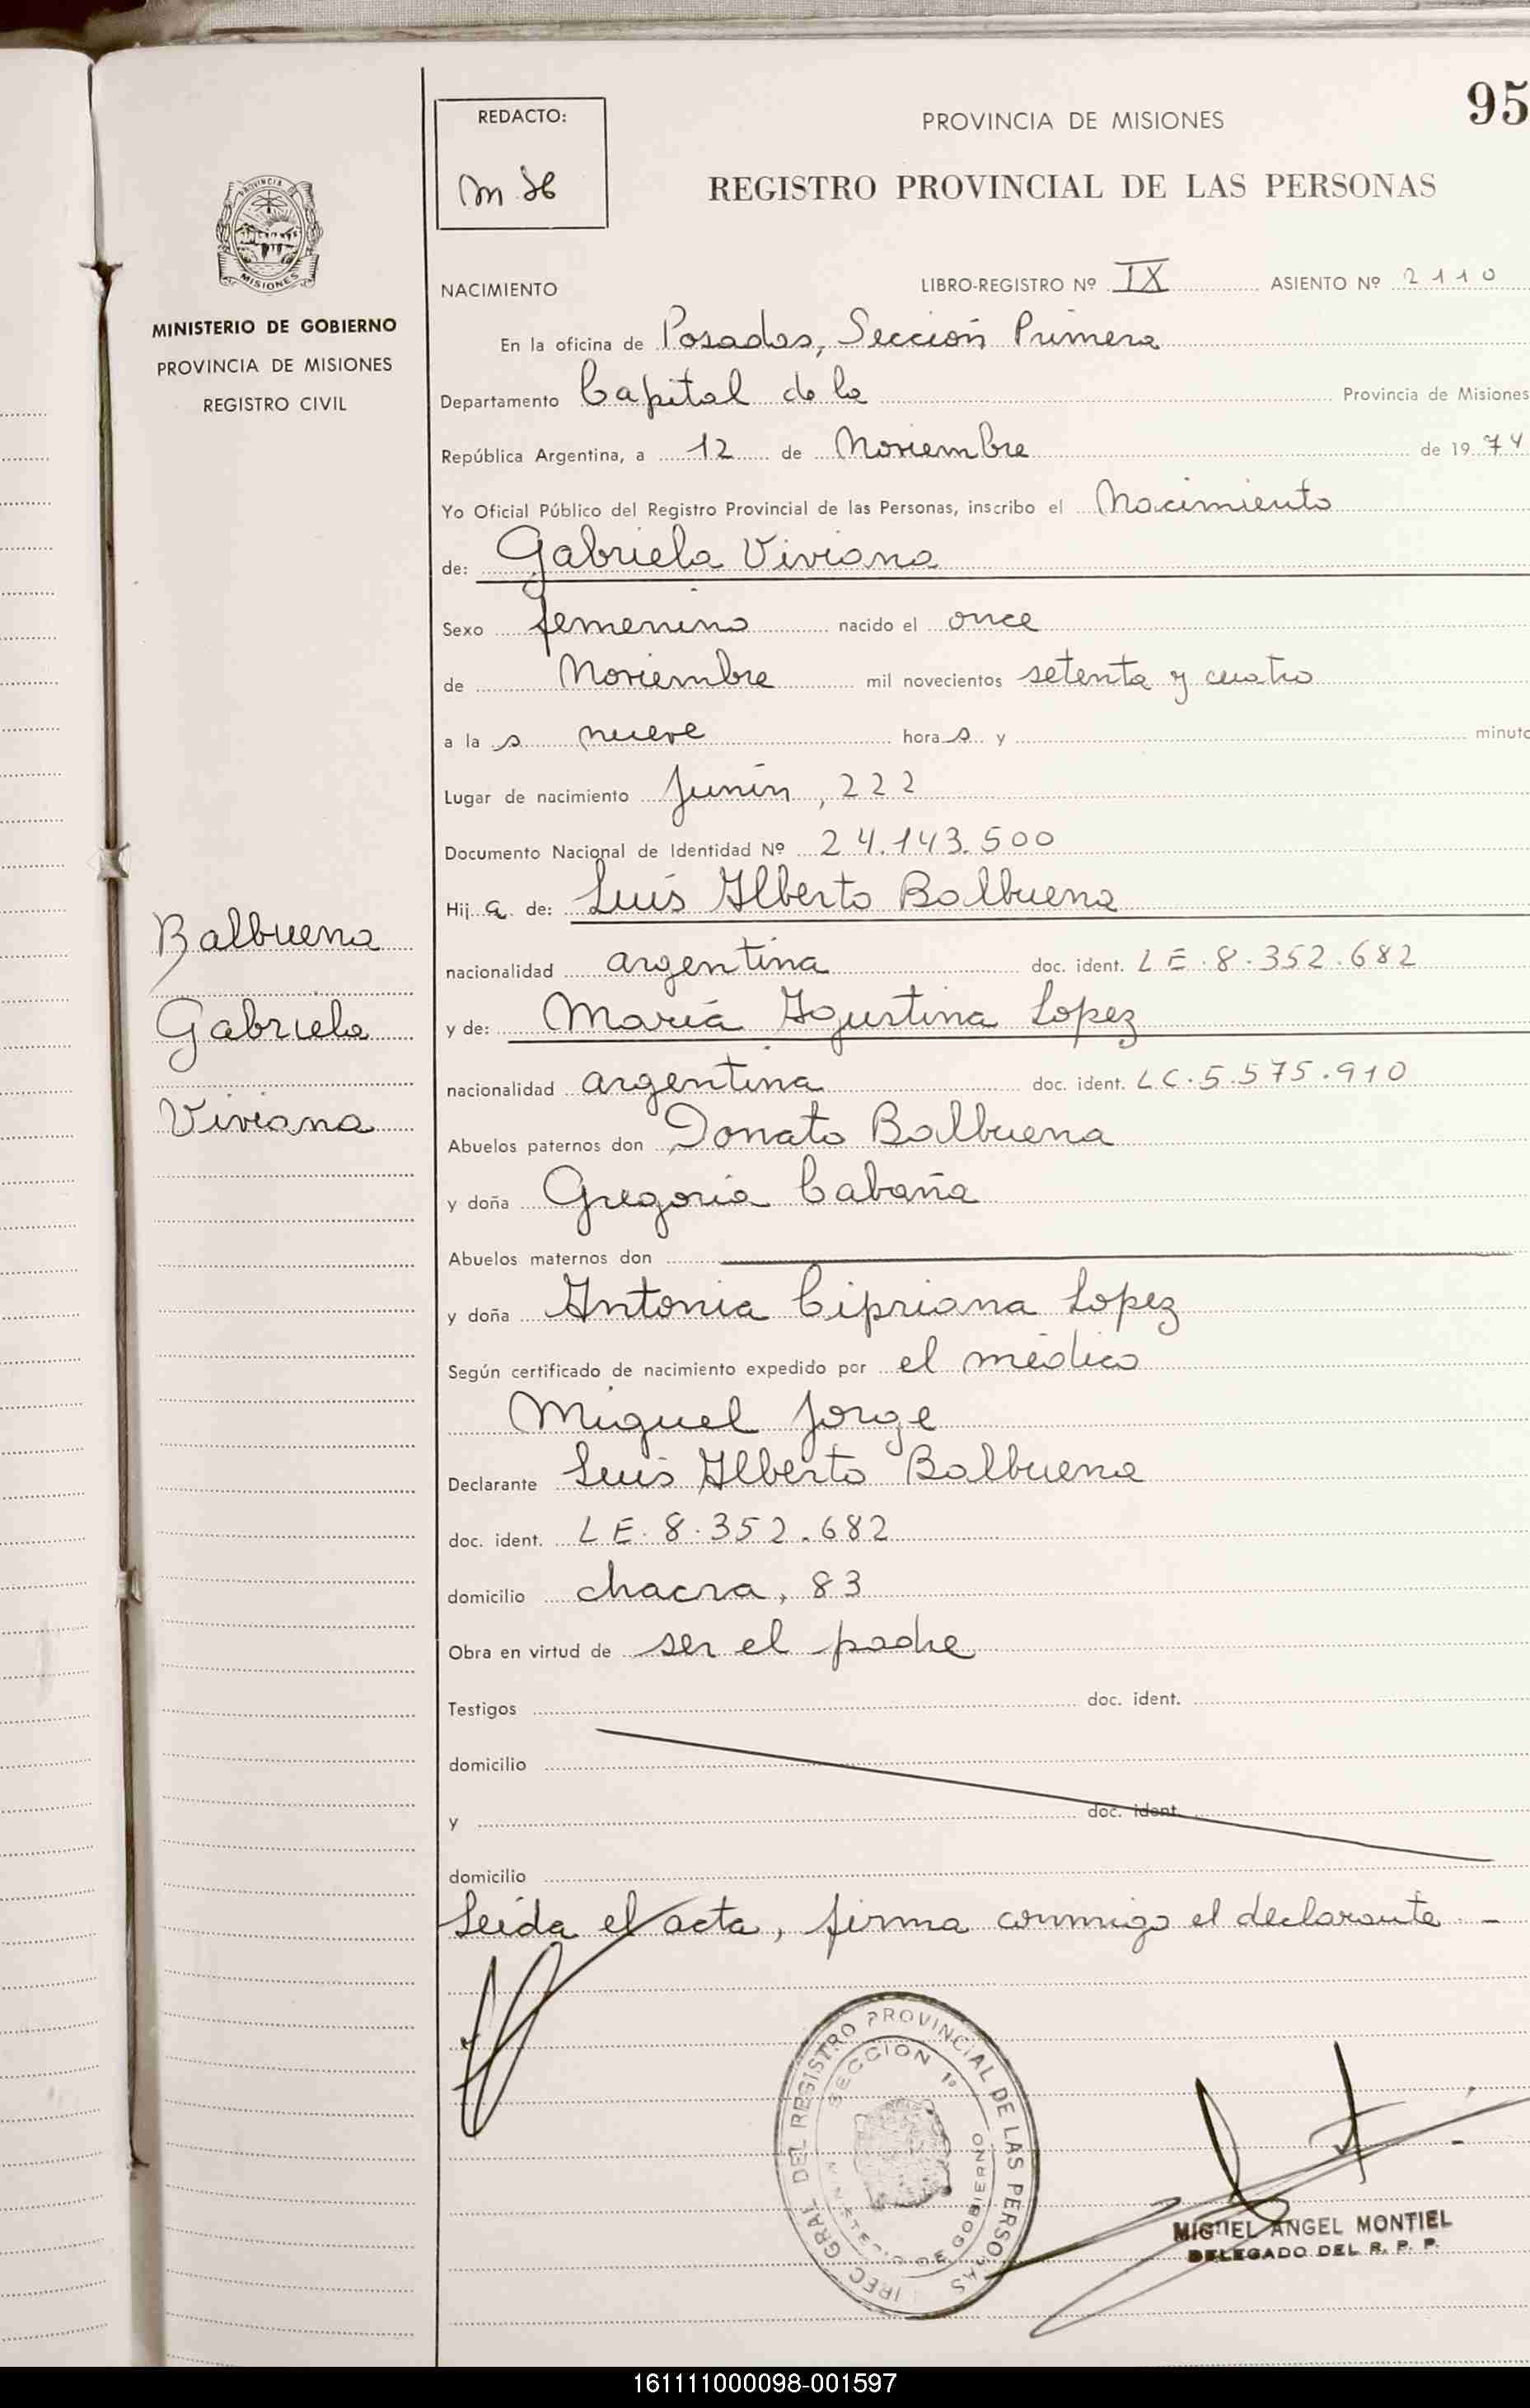 95
REDACTO:
PROVINCIA DE MISIONES
REGISTRO PROVINCIAL DE LAS PERSONAS
PROVINCIA
MISIONES
MINISTERIO DE GOBIERNO
PROVINCIA DE MISIONES
REGISTRO CIVIL
NACIMIENTO LIBRO-REGISTRO Nº IX ASIENTO Nº 2110
En la oficina de Posadas, Sección Primera
Departamento Capital de la Provincia de Misiones
República Argentina, a 12 de Noviembre de 1974
Yo Oficial Público del Registro Provincial de las Personas, inscribo el Nacimiento
de: Gabriela Viviana
Sexo femenino nacido el once
de Noviembre mil novecientos setenta y cuatro
a las nueve horas y minuto
Lugar de nacimiento Junín, 222
Documento Nacional de Identidad Nº 24.143.500
Hija de: Luis Alberto Balbuena
nacionalidad argentina doc. ident. LE.8.352.682
y de: María Agustina Lopez
nacionalidad argentina doc. ident. LC.5.575.910
Abuelos paternos don Donato Balbuena
y doña Gregoria Cabaña
Abuelos maternos don
y doña Antonia Cipriana Lopez
Según certificado de nacimiento expedido por el médico
Miguel Jorge
Declarante Luis Alberto Balbuena
doc. ident. LE.8.352.682
domicilio chacra, 83
Obra en virtud de ser el padre
Testigos doc. ident.
domicilio
y doc. ident.
domicilio
Leída el acta, firma conmigo el declarante -
Balbuena
Gabriela
Viviana
GRAL DEL REGISTRO PROVINCIAL DE LAS PERSONAS
SECCION 1º
DE GOBIERNO
MIGUEL ANGEL MONTIEL
DELEGADO DEL R. P. P.
161111000098-001597